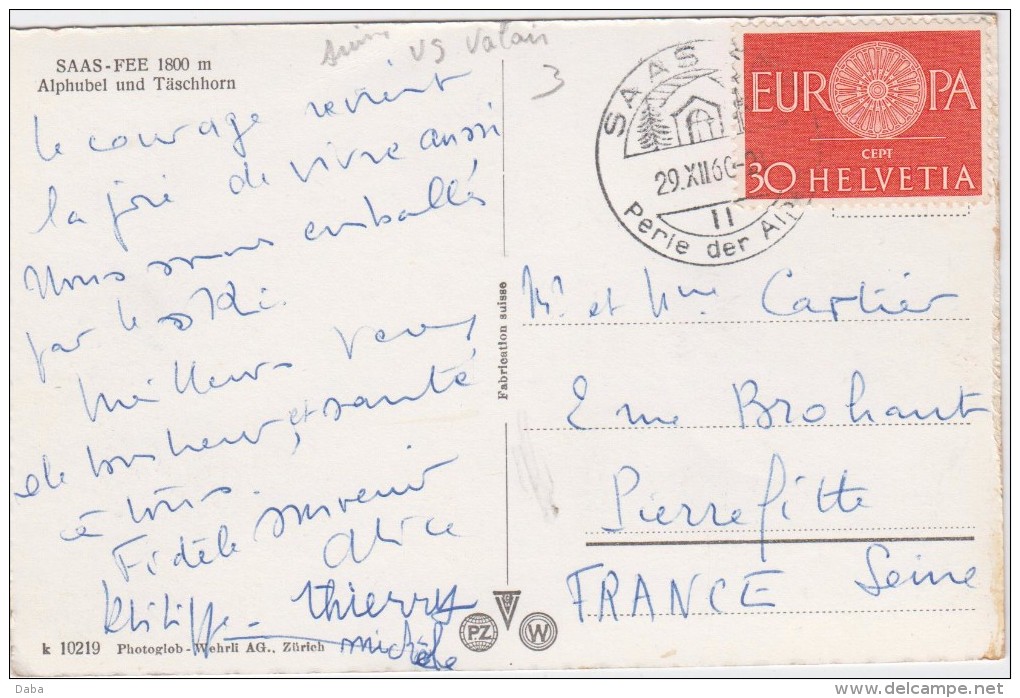 SAAS-FEE 1800 m
Alphubel und Täschhorn
Suisse VS Valais
3
le courage revient
la joie de vivre aussi
Nous sommes emballés
par le ski.
Meilleurs voeux
de bonheur, et santé
à tous.
Fidèle souvenir
Alice
Philippe Thierry
Michèle
k 10219 Photoglob-Wehrli AG., Zürich
Fabrication suisse
PZ W
SAAS
29.XII.60
11
Perle der Alp
EUROPA
CEPT
30 HELVETIA
Mr et Mme Cartier
2 rue Brohant
Pierrefitte
Seine
FRANCE
Daba
www.delcampe.net